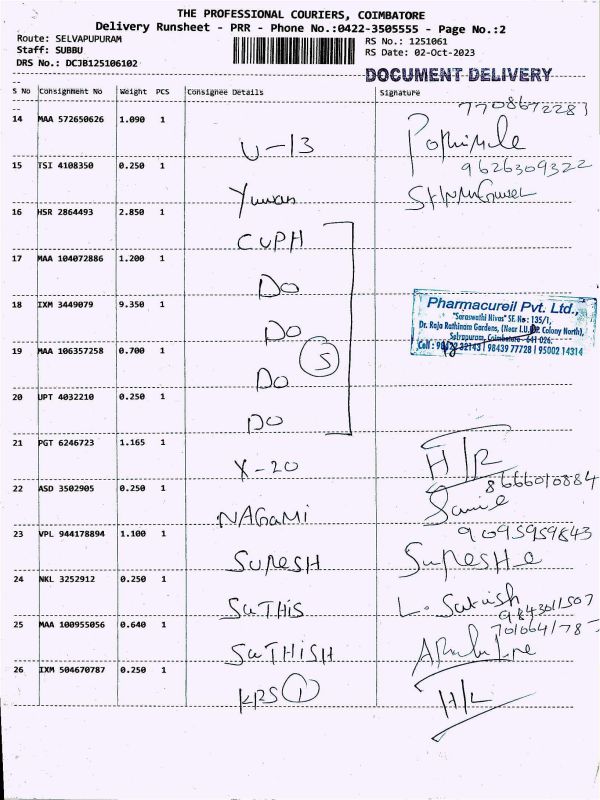 THE PROFESSIONAL COURIERS, COIMBATORE
Delivery Runsheet - PRR - Phone No.:0422-3505555 - Page No.:2
Route: SELVAPUPURAM
RS No.: 1251061
Staff: SUBBU
RS Date: 02-Oct-2023
DRS No.: DCJB125106102
DOCUMENT DELIVERY
S No Consignment No Weight PCS Consignee Details Signature
7708672283
14 MAA 572650626 1.090 1
U-13
15 TSI 4108350 0.250 1 9626309322
Yuvan
16 HSR 2864493 2.850 1
CUPH
17 MAA 104072886 1.200 1
Do
18 IXM 3449079 9.350 1
Do
Pharmacureil Pvt. Ltd.,
"Saraswathi Nivas" SF. No : 135/1,
Dr. Raja Rathinam Gardens, (Near I.U.D.P. Colony North),
Selvapuram, Coimbatore - 641 026.
Cell : 32143 | 98439 77728 | 95002 14314
19 MAA 106357258 0.700 1
5
Do
20 UPT 4032210 0.250 1
Do
21 PGT 6246723 1.165 1
X-20 H/R
8666010884
22 ASD 3502905 0.250 1
NAGaMi
23 VPL 944178894 1.100 1 9095959843
SuRESH
24 NKL 3252912 0.250 1
SaTHIS L. Satish
25 MAA 100955056 0.640 1
SaTHISH
26 IXM 504670787 0.250 1
KPS 1 H/L